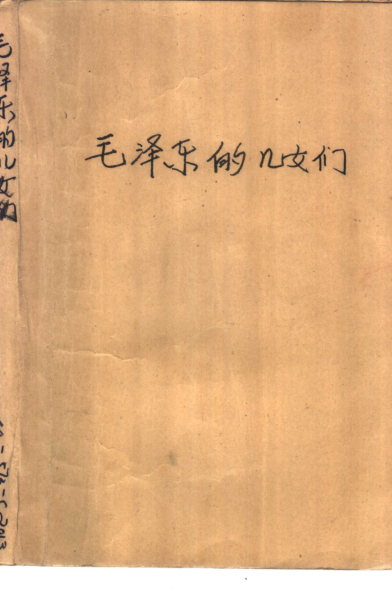 毛泽东的儿女们
毛泽东的儿女们